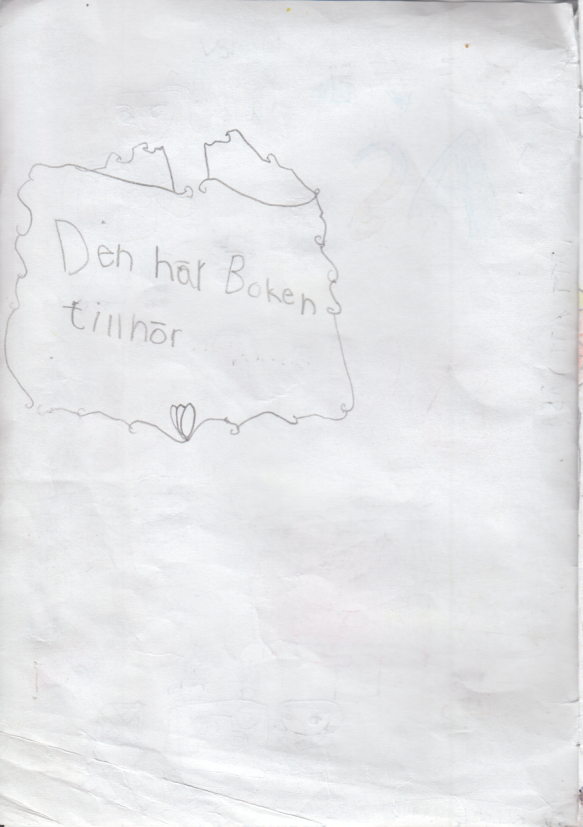 Den här Boken
tillhör